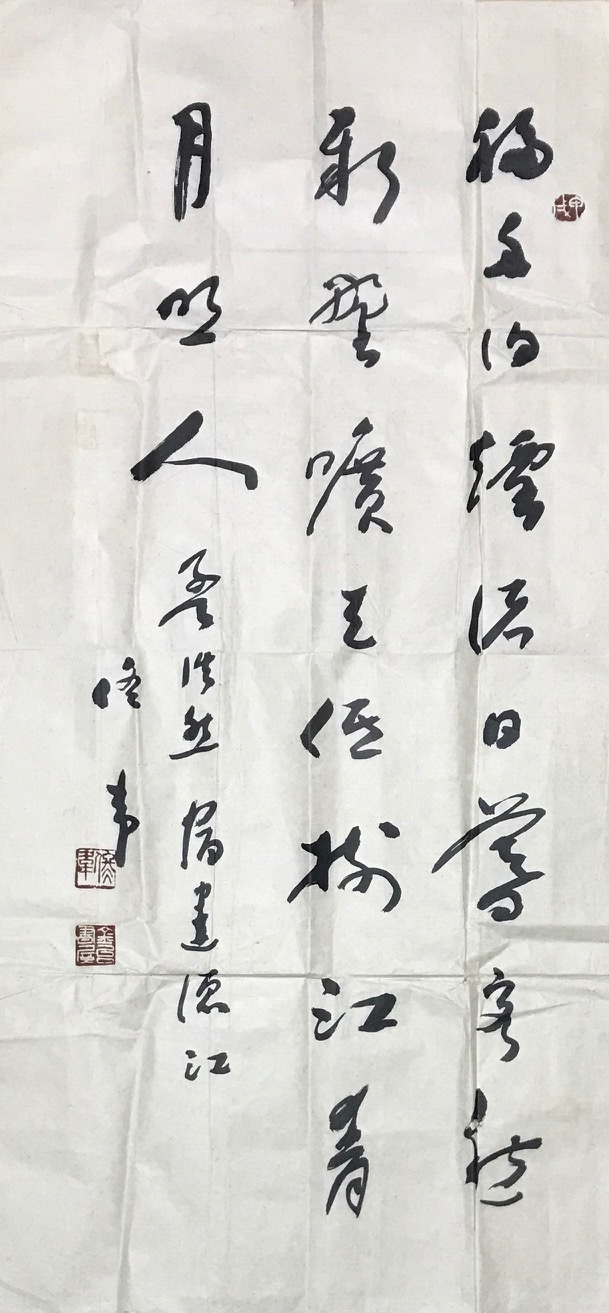 移舟泊煙渚日暮客愁
新野曠天低樹江清
月近人
孟浩然宿建德江
韋
甲戌